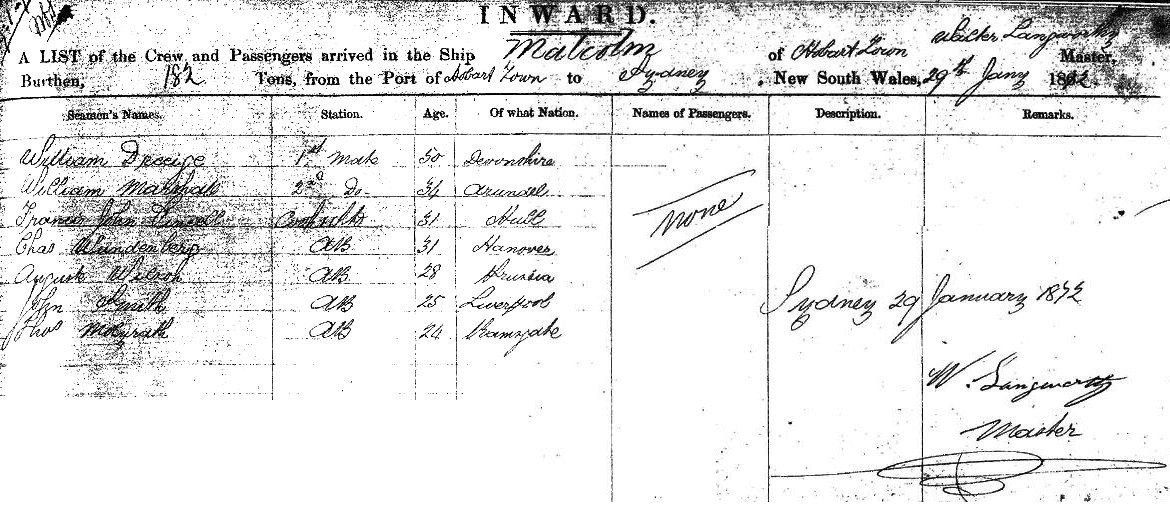 INWARD.
A LIST of the Crew and Passengers arrived in the Ship Malcolm of Hobart Town Walter Langworthy Master,
Burthen, 182 Tons, from the Port of Hobart Town to Sydney New South Wales, 29th Jany 1872
Seamen's Names. Station. Age. Of what Nation. Names of Passengers. Description. Remarks.
William 1st Mate 50 Devonshire
William Marshall 2nd Do 34 Arundel None
Francis John 31 Hull
Chas Wundenberg AB 31 Hanover
August Wilson AB 28 Prussia
John Smith AB 25 Liverpool
Thos McGrath AB 24 Ramsgate
Sydney 29 January 1872
W. Langworthy
Master